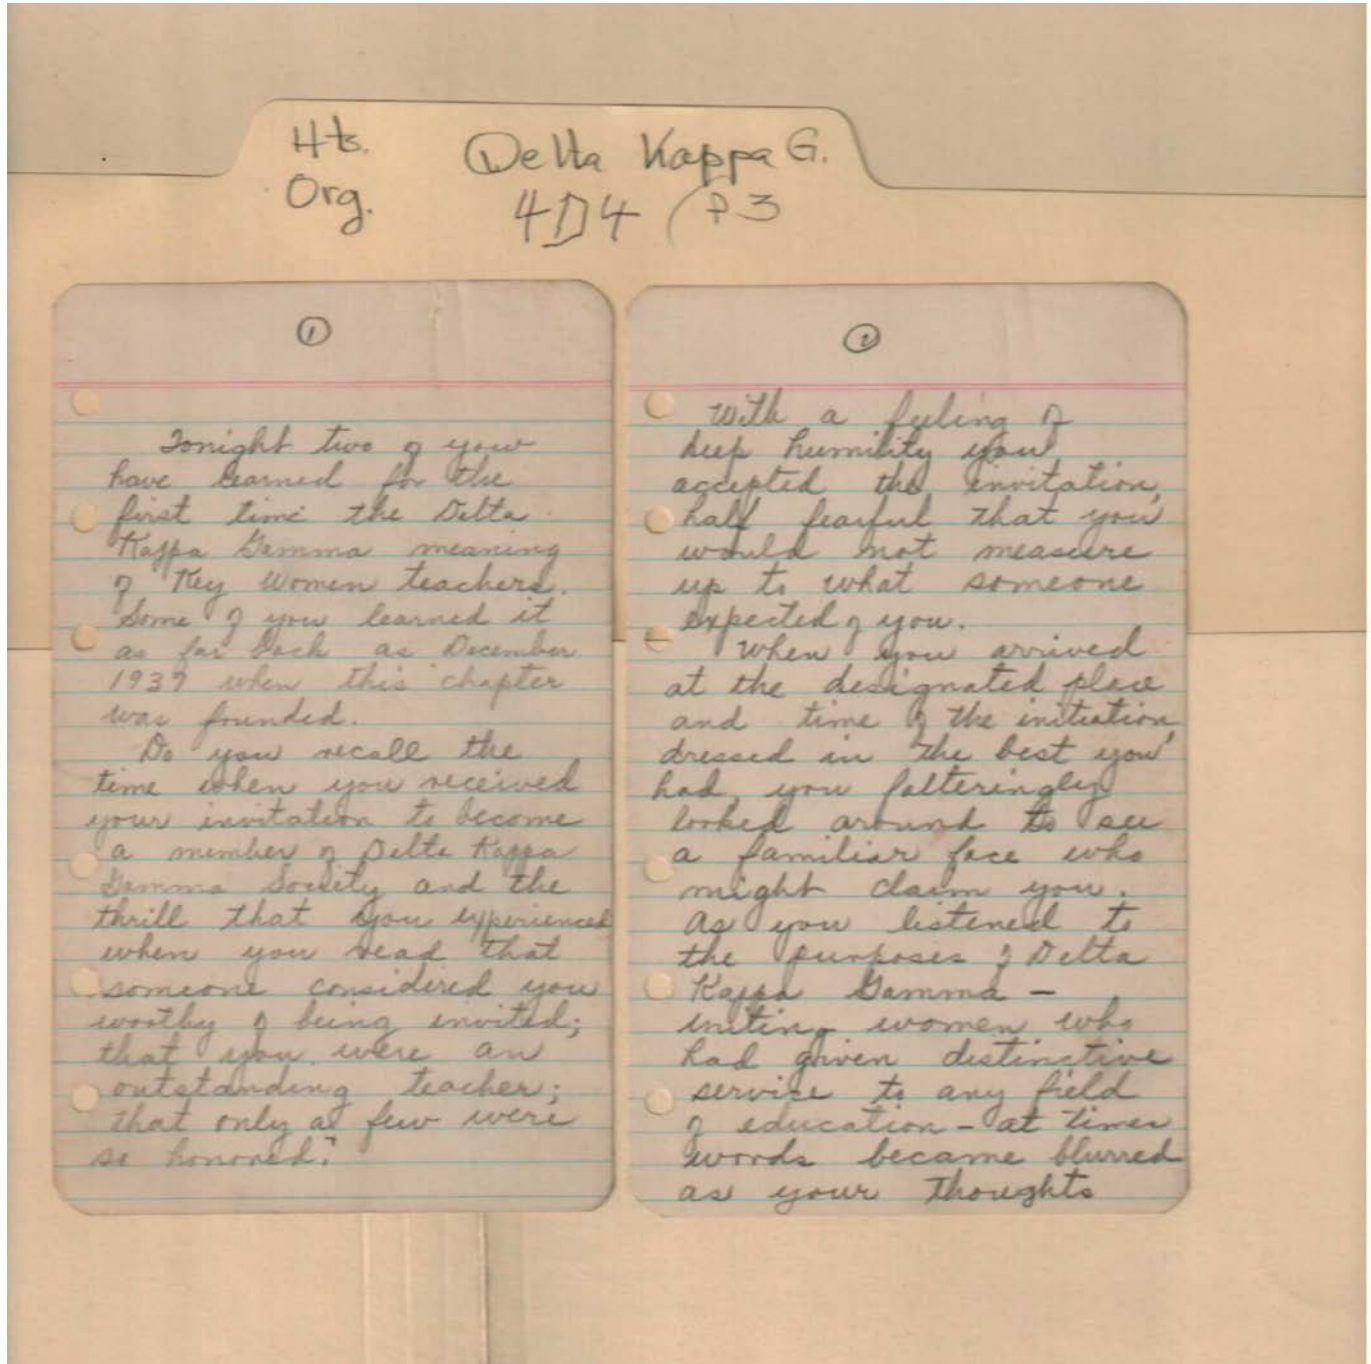 Hts. Delta Kappa G.
Org. 4D4 / P3
①
Tonight two of you
have learned for the
first time the Delta
Kappa Gamma meaning
of Key Women teachers.
Some of you learned it
as far back as December
1937 when this chapter
was founded.
Do you recall the
time when you received
your invitation to become
a member of Delta Kappa
Gamma Society and the
thrill that you experienced
when you read that
someone considered you
worthy of being invited;
that you were an
outstanding teacher;
that only a few were
so honored?
②
With a feeling of
deep humility you
accepted the invitation,
half fearful that you
would not measure
up to what someone
expected of you.
When you arrived
at the designated place
and time of the initiation,
dressed in the best you
had, you falteringly
looked around to see
a familiar face who
might claim you.
As you listened to
the purposes of Delta
Kappa Gamma —
uniting women who
had given distinctive
service to any field
of education - at times
words became blurred
as your thoughts